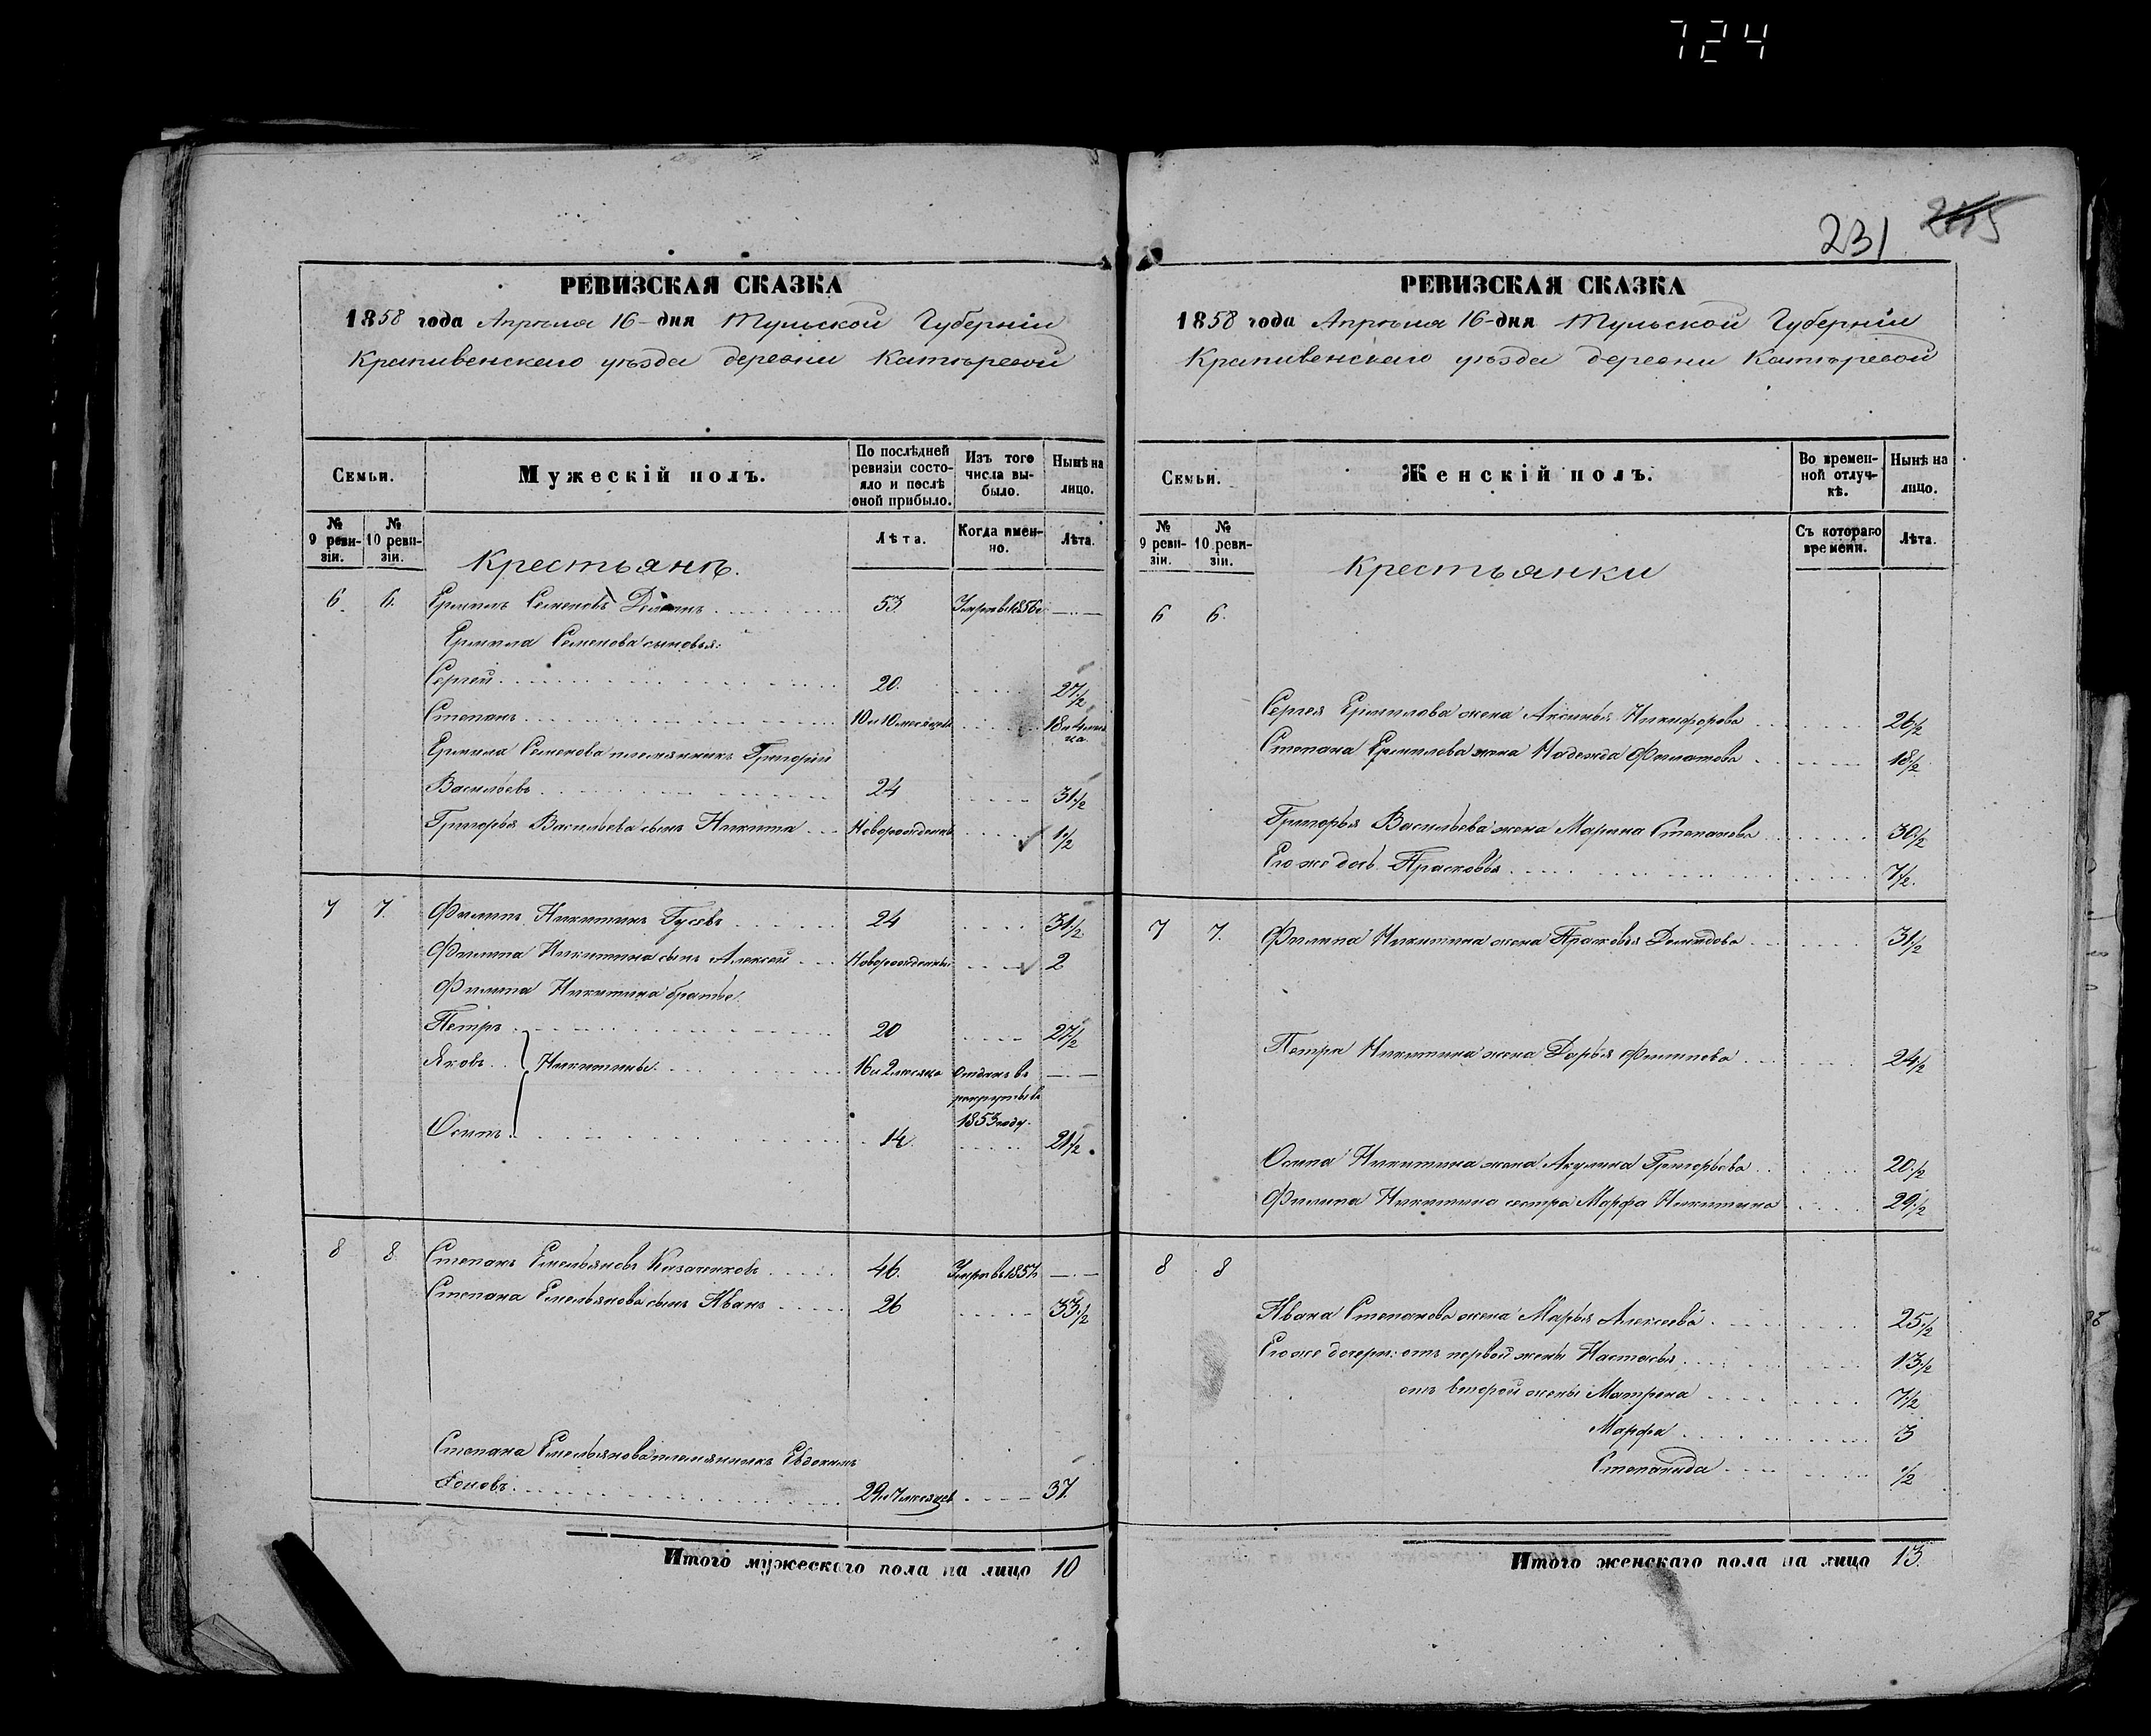 724
231 245
РЕВИЗСКАЯ СКАЗКА
1858 года Апрѣля 16-дня Тульской Губерніи
Крапивенскаго уѣзда деревни
Семьи.
Мужескій полъ.
По послѣдней ревизіи состояло и послѣ оной прибыло.
Изъ того числа выбыло.
Нынѣ на лицо.
№ 9 ревизіи.
№ 10 ревизіи.
Крестьянъ.
Лѣта.
Когда именно.
Лѣта.
6. 6. Ермилъ Семеновъ 53 Умръ въ 1856
Ермила Семенова сыновья:
Сергей 20. 27 1/2
Степанъ 10 и 10 месяцевъ 18 и 4
Ермила Семенова племянникъ Григорій
Васильевъ 24 31 1/2
Григорья Васильева сынъ Никита Новорожденъ 1 1/2
7 7. Филипъ Никитинъ Гусевъ 24 31 1/2
Филипа Никитина сынъ Алексей Новорожденный 2
Филипа Никитина братья
Петръ 20 27 1/2
Яковъ Никитины 16 и 2 месяца Отданъ въ
рекруты въ
1853 году.
Осипъ 14 21 1/2
8 8 Степанъ Емельяновъ 46. Умръ въ 1857
Степана Емельянова сынъ Иванъ 26 33 1/2
Степана Емельянова племянникъ Евдокимъ
29 и 7 месяцев 37.
Итого мужескаго пола на лицо 10
РЕВИЗСКАЯ СКАЗКА
1858 года Апрѣля 16-дня Тульской Губерніи
Крапивенскаго уѣзда деревни
Семьи.
Женскій полъ.
Во временной отлучкѣ.
Нынѣ на лицо.
№ 9 ревизіи.
№ 10 ревизіи.
Крестьянки
Съ котораго времени.
Лѣта.
6 6.
Сергея Ермилова жена Аксинья Никифорова 26 1/2
Степана Ермилова жена Надежда Филатова 18 1/2
Григорья Васильева жена Марина Степанова 30 1/2
Его же дочь Прасковья 7 1/2.
7 7. Филипа Никитина жена Прасковья Демидова 31 1/2
Петра Никитина жена Дарья Филипова 24 1/2
Осипа Никитина жена Акулина Григорьева 20 1/2
Филипа Никитина сестра Марфа Никитина 29 1/2
8 8
Ивана Степанова жена Марья Алексеева 25 1/2
Его же дочери: отъ первой жены Настасья 13 1/2
отъ второй жены Матрена 7 1/2
Марфа 3
Степанида 1/2
Итого женскаго пола на лицо 13.